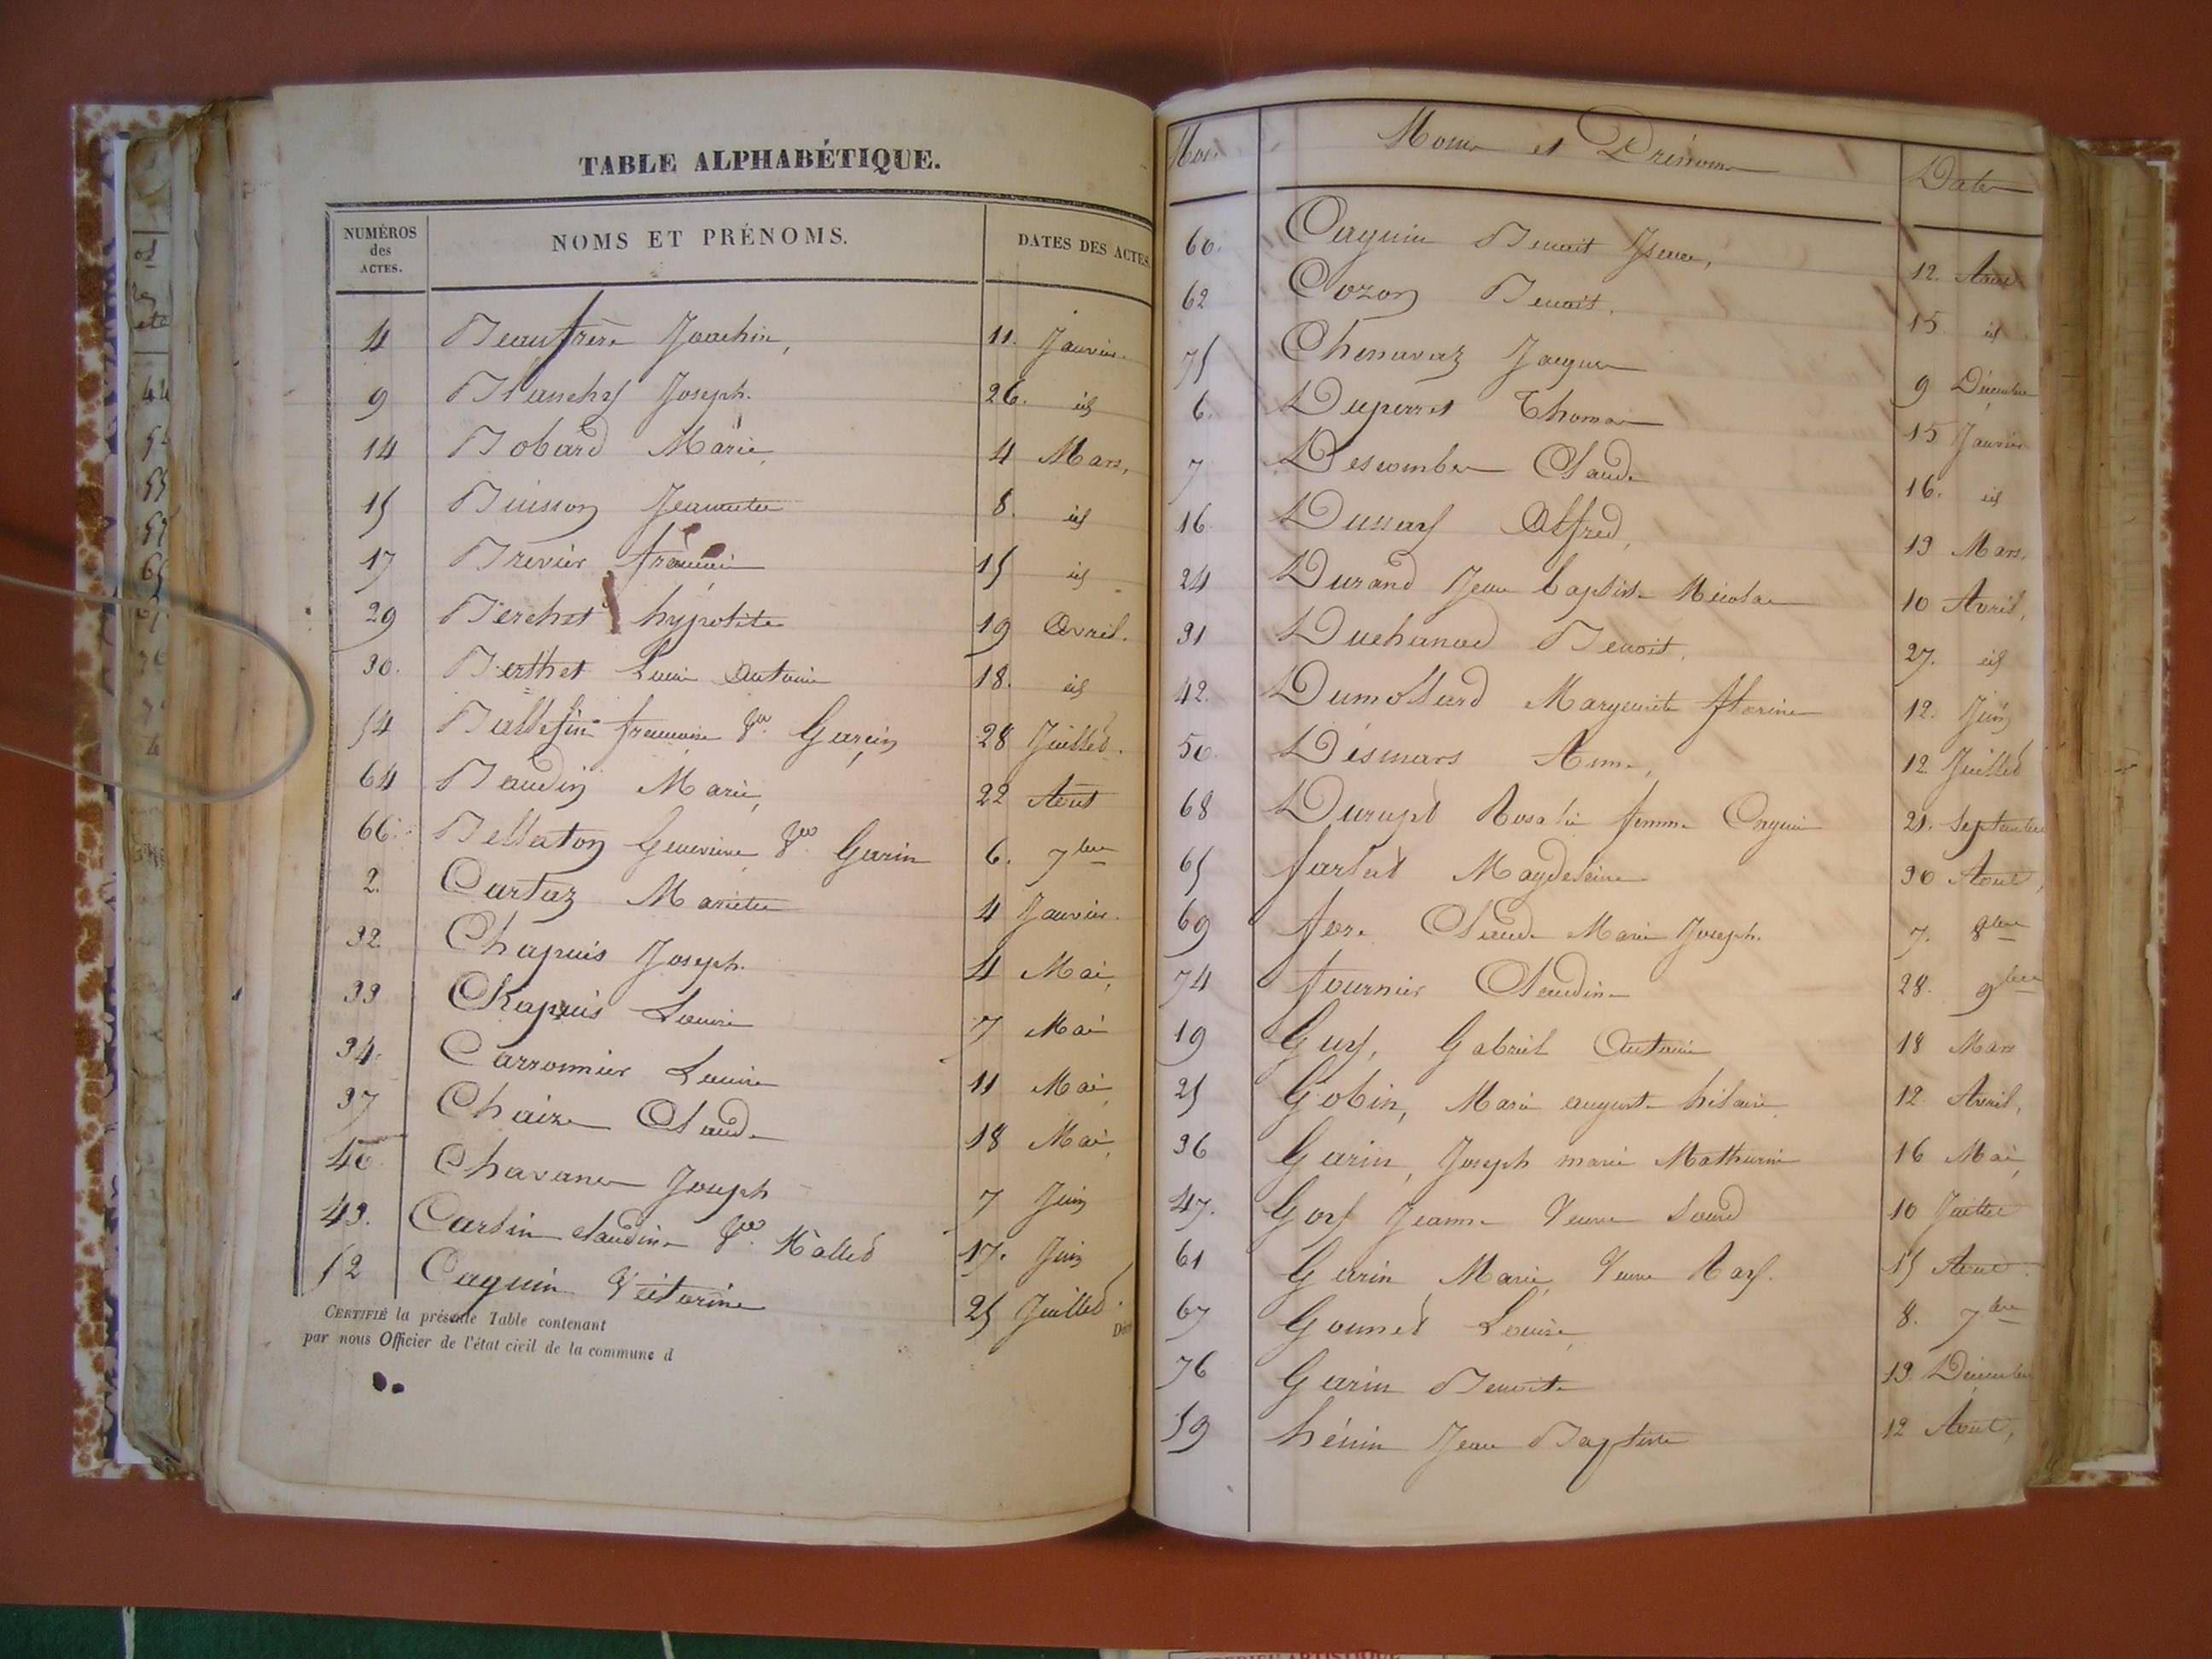 TABLE ALPHABÉTIQUE.
NUMÉROS des ACTES. NOMS ET PRÉNOMS. DATES DES ACTES
4 Beaufrère Joachin, 11. Janvier.
9 Blanchy Joseph. 26. id
14 Bobard Marie, 4 Mars,
15 Buisson Jeannette 8. id
17 Brevier 15 id
29 Berchet hypolite 19 Avril.
30. Berthet Antoine 18. id
54 Ballefin françoise Ve. Garcin 28 Juillet.
64 Baudin Marie, 22 Août
66. Bellaton Genevieve Ve. Garin 6. 7bre
2. Cartaz Mariette 4 Janvier.
32. Chapuis Joseph. 4 Mai,
33 Chapuis Louise 7 Mai
34. Carronnier Louise 11 Mai,
37 Chaize Claude 18 Mai,
40. Chavanes Joseph 7 Juin
43. Carlin Claudine Ve. Hallet 17. Juin
52 Caguin Victorine 25 Juillet.
CERTIFIÉ la présente Table contenant
par nous Officier de l'état civil de la commune d
Nos. Noms et Prénoms Dates
60. Caguin Benoit 12. Aout
62 Cozon Benoit. 15 id
75 Chenavaz Jacques 9 Décembre
6. Duperret Thomas 15 Janvier
7 Descombes Claude 16. id
16. Dussay Alfred, 13 Mars,
24 Durand Jean baptiste Nicolas 10 Avril,
31 Duchanad Benoit. 27. id
42. Dumollard Marguerite florine 12. Juin
50. Désmars Anne, 12. Juillet
68 Durupt Rosalie femme Caguin 21. Septembre
65 farlat Magdeleine 30 Aout,
69 fore Claude Marie Joseph. 7. 8bre
74 fournier Claudine 28. 9bre
19 Guy, Gabriel Antoine 18 Mars
25 Gobin, Marie auguste hilaire 12. Avril,
36 Garin, Joseph marie Mathurin 16 Mai,
47. Goy Jeanne Veuve Sourd 10 Juillet
61 Garin Marie, Veuve Ray. 15 Aout
67 Gounet Louise, 8. 7bre
76 Garin Benoite 13. Décembre
59 hénin Jean Baptiste 12 Aout,